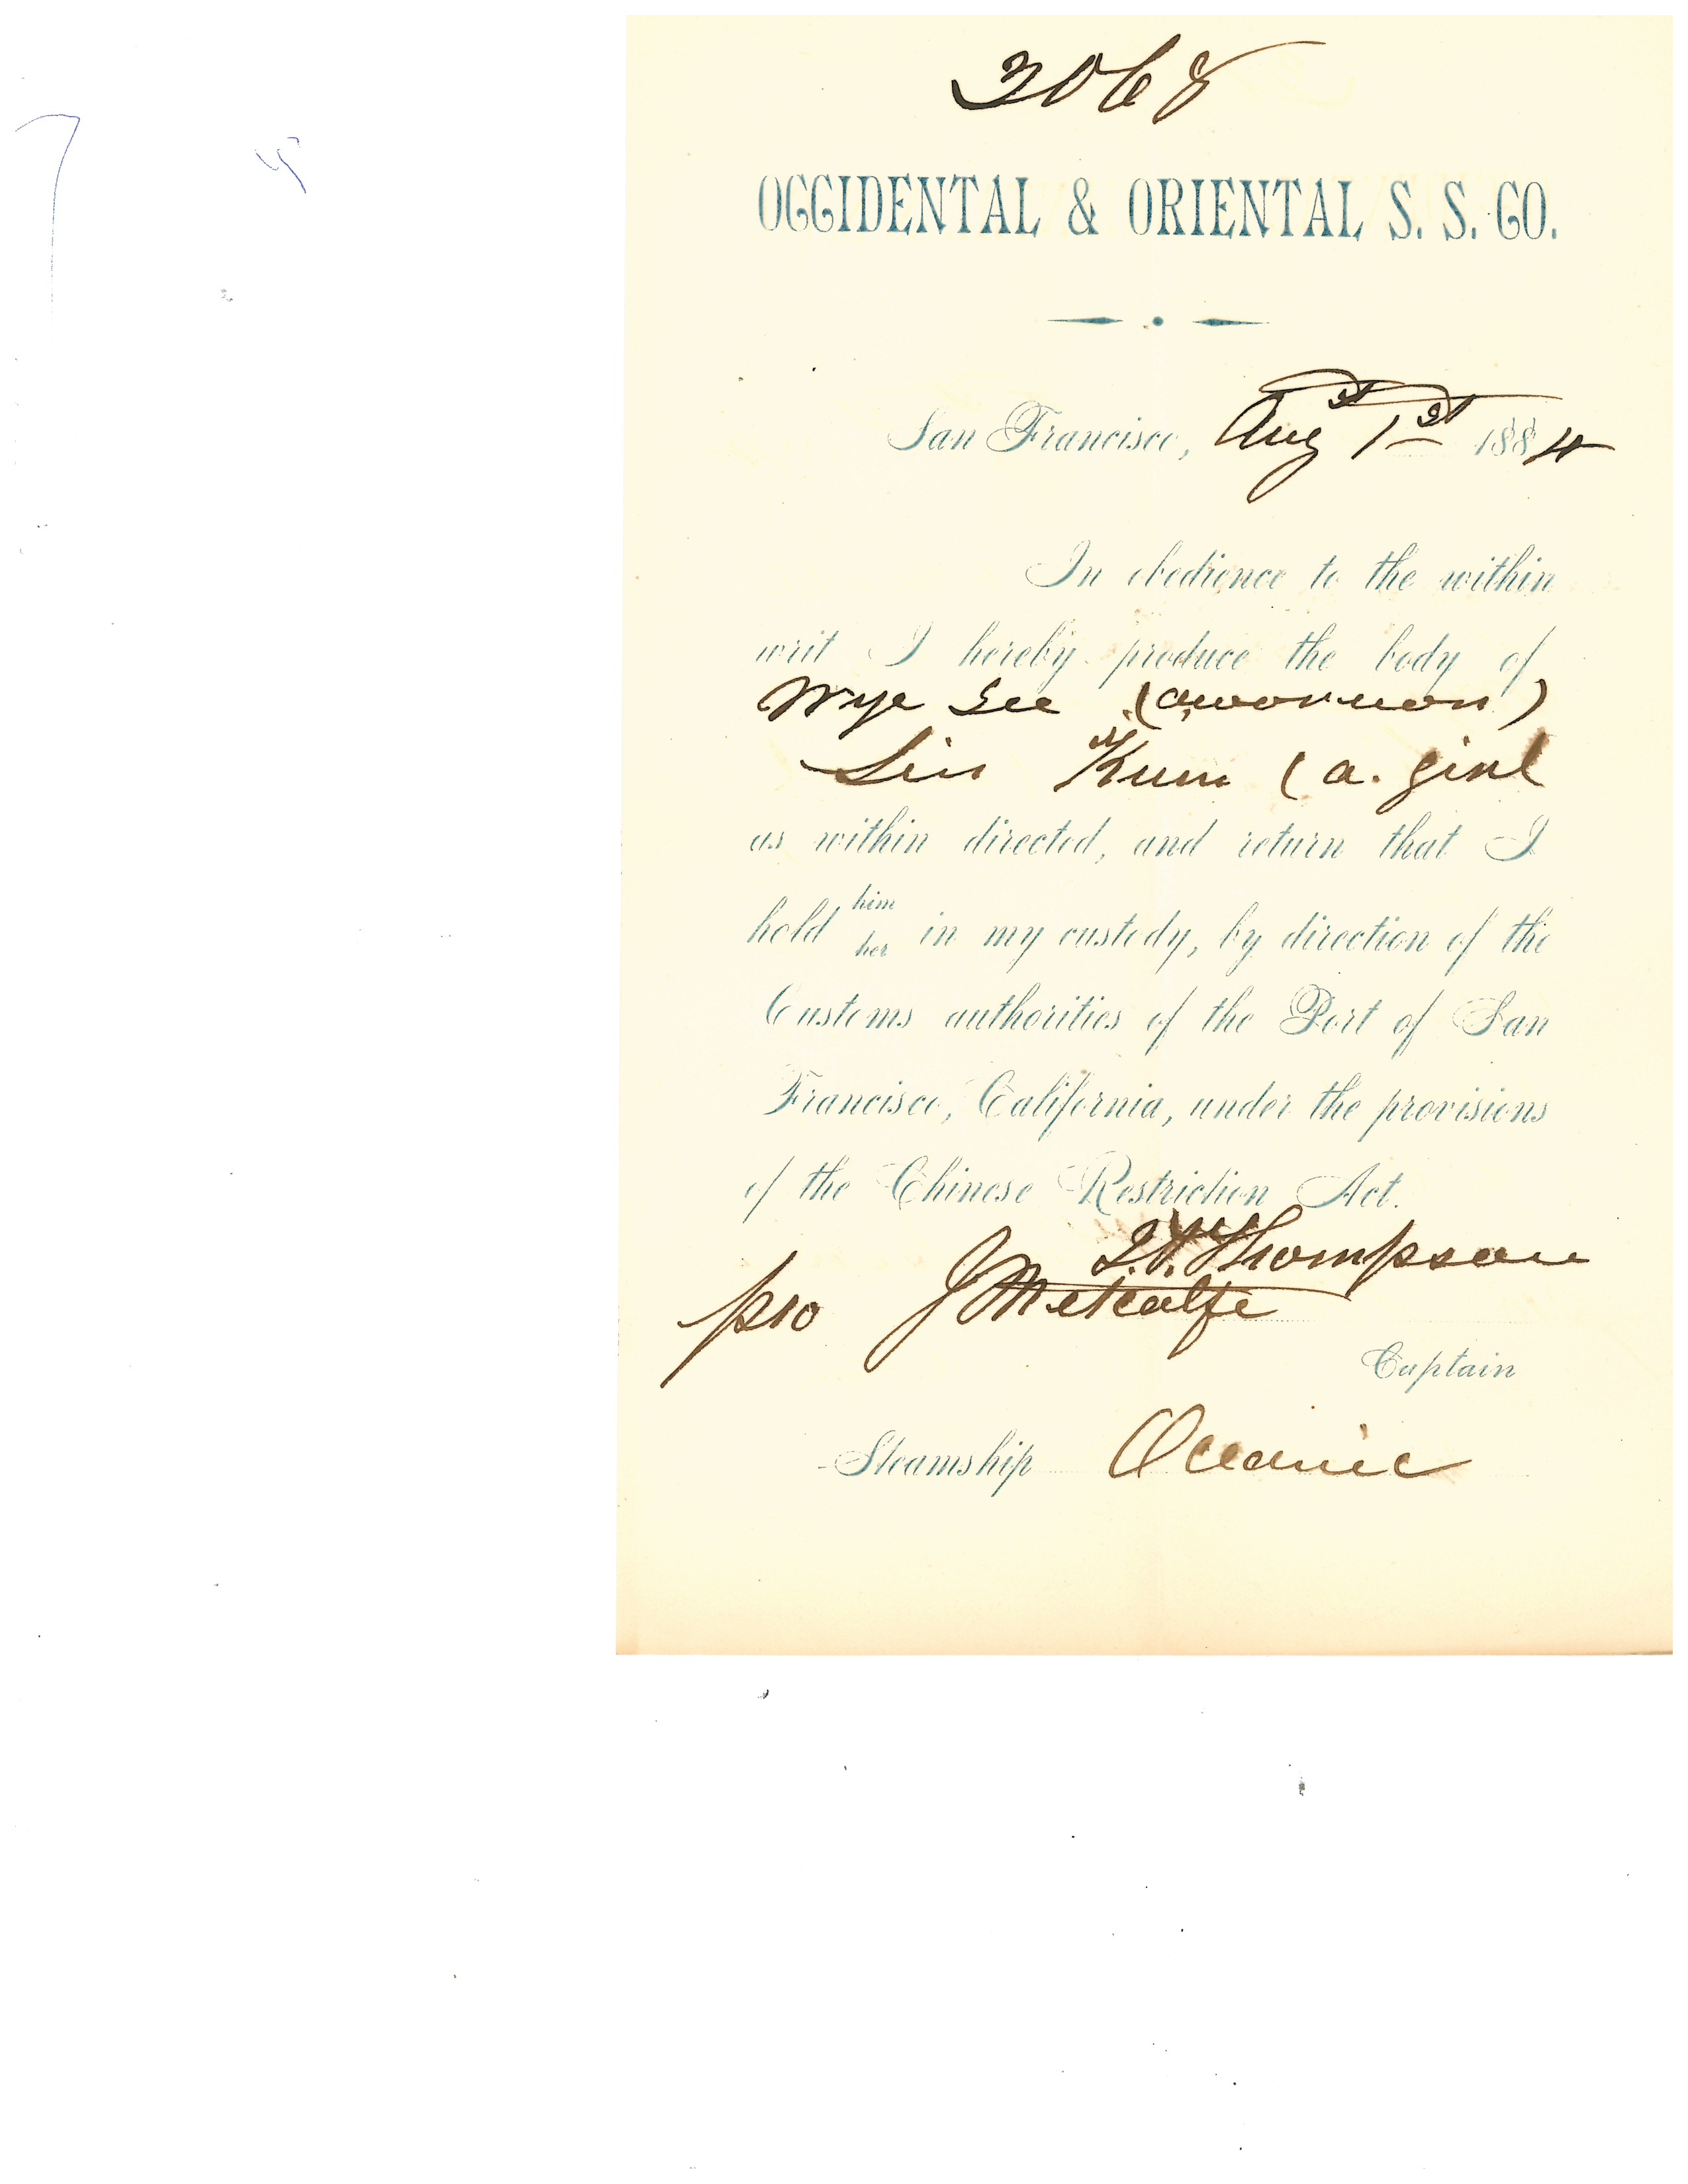 3068
OCCIDENTAL & ORIENTAL S. S. CO.
San Francisco, Aug 1st 1884
In obedience to the within
writ I hereby produce the body of
Wye See (a woman)
Lin Kum (a. girl
as within directed, and return that I
hold him her in my custody, by direction of the
Customs authorities of the Port of San
Francisco, California, under the provisions
of the Chinese Restriction Act.
Thompson
pro J Metcalfe
Captain
Steamship Oceanic